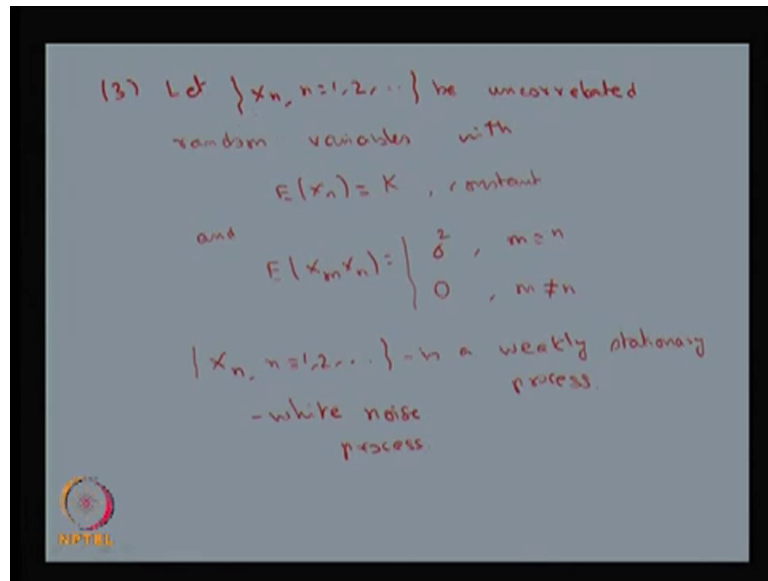 (3) Let {Xn, n=1,2,...} be uncorrelated
random variables with
E(Xn) = K, constant
and
E(XmXn) = { σ², m = n
0, m ≠ n
{Xn, n=1,2,...} - is a weakly stationary
process.
- white noise
process.
NPTEL